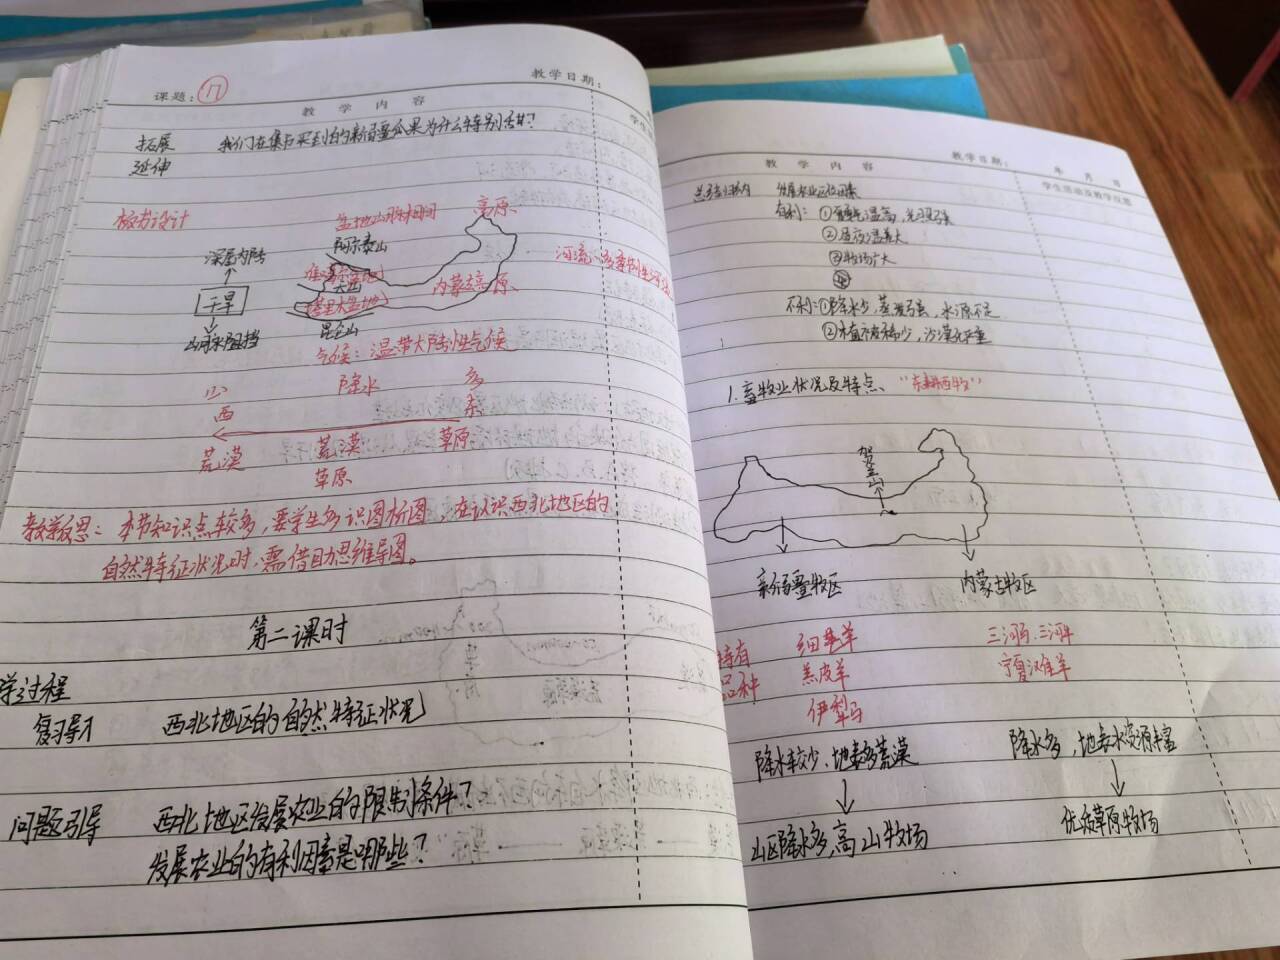 课题：17
教学日期：
教学内容
拓展 我们在集市买到的新疆瓜果为什么特别甜？
延伸
板书设计
盆地山脉相间 高原
阿尔泰山
深居内陆
准噶尔盆地
天山
干旱
塔里木盆地
内蒙古高原
昆仑山
山脉阻挡
河流：多季节性河流
气候：温带大陆性气候
少 降水 多
西 东
荒漠 荒漠 草原
草原
教学反思：本节知识点较多，要学生多识图析图，在认识西北地区的
自然特征状况时，需借助思维导图。
第二课时
学过程
复习导入 西北地区的自然特征状况
问题引导 西北地区发展农业的限制条件？
发展农业的有利因素是哪些？
教学内容
教学日期： 年 月 日
学生活动及教学反思
总结归纳 发展农业区位因素
有利：①夏季气温高，光照强
②昼夜温差大
③牧场广大
④
不利：①降水少，蒸发强，水源不足
②植被稀少，沙漠化严重
1.畜牧业状况及特点、“东耕西牧”
贺兰山
新疆牧区 内蒙古牧区
特有 细毛羊 三河马、三河牛
品种 羔皮羊 宁夏滩羊
伊犁马
降水较少，地表多荒漠 降水多，地表水资源丰富
山区降水多，高山牧场 优质草原牧场